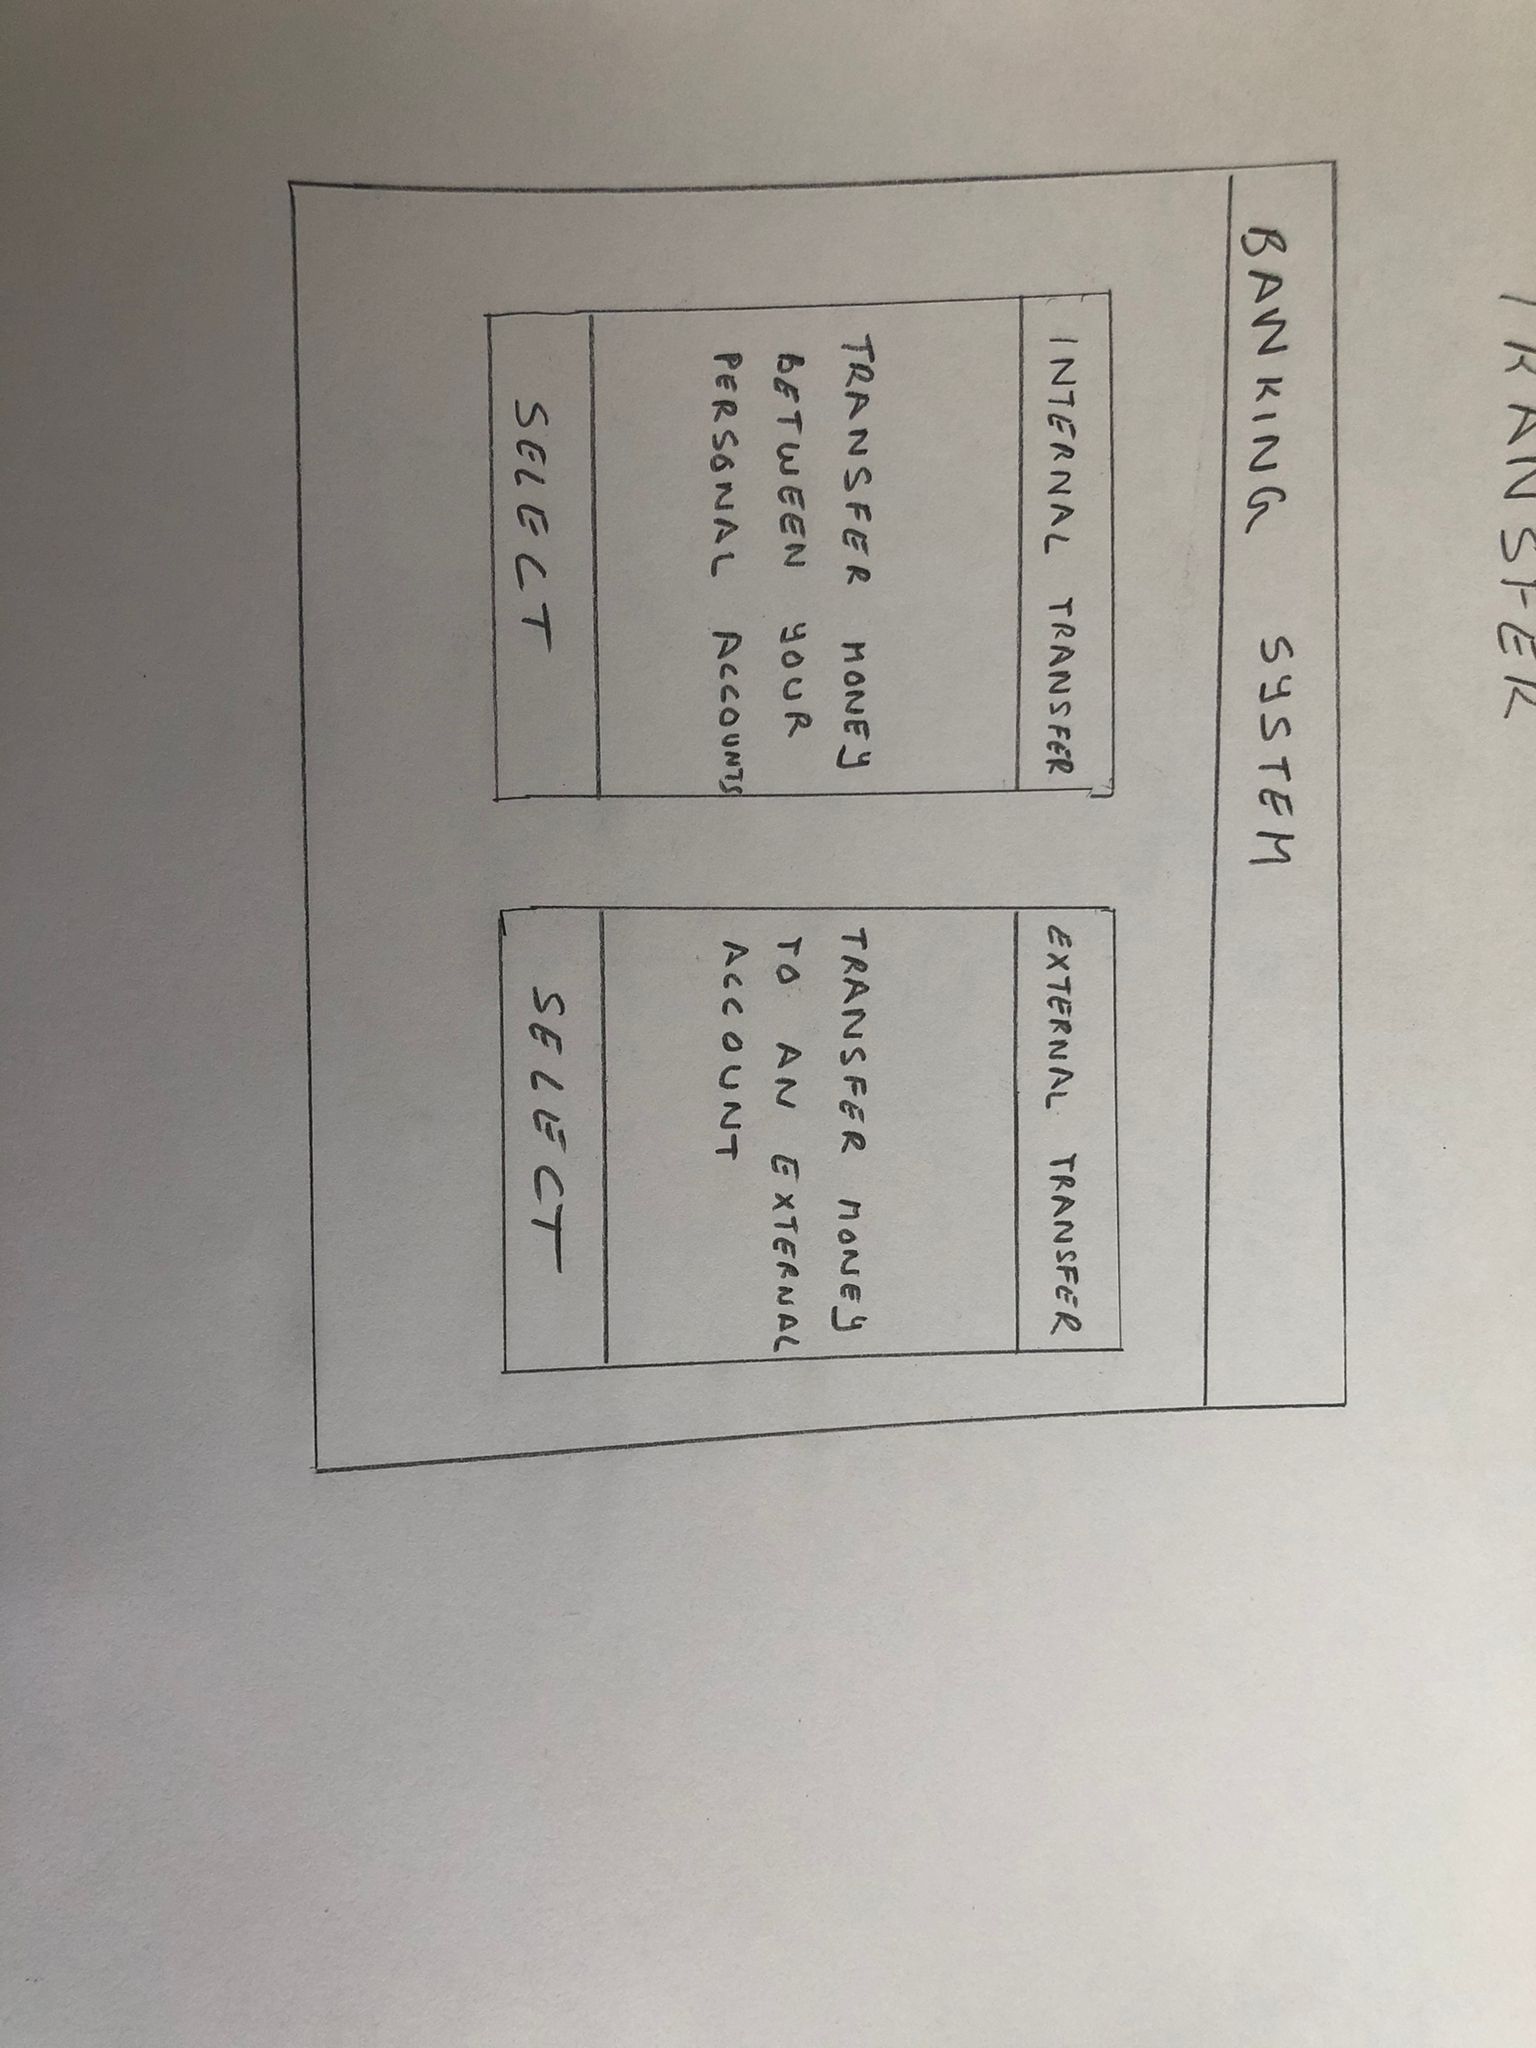 TRANSFER
BANKING SYSTEM
INTERNAL TRANSFER
TRANSFER MONEY
BETWEEN YOUR
PERSONAL ACCOUNTS
SELECT
EXTERNAL TRANSFER
TRANSFER MONEY
TO AN EXTERNAL
ACCOUNT
SELECT